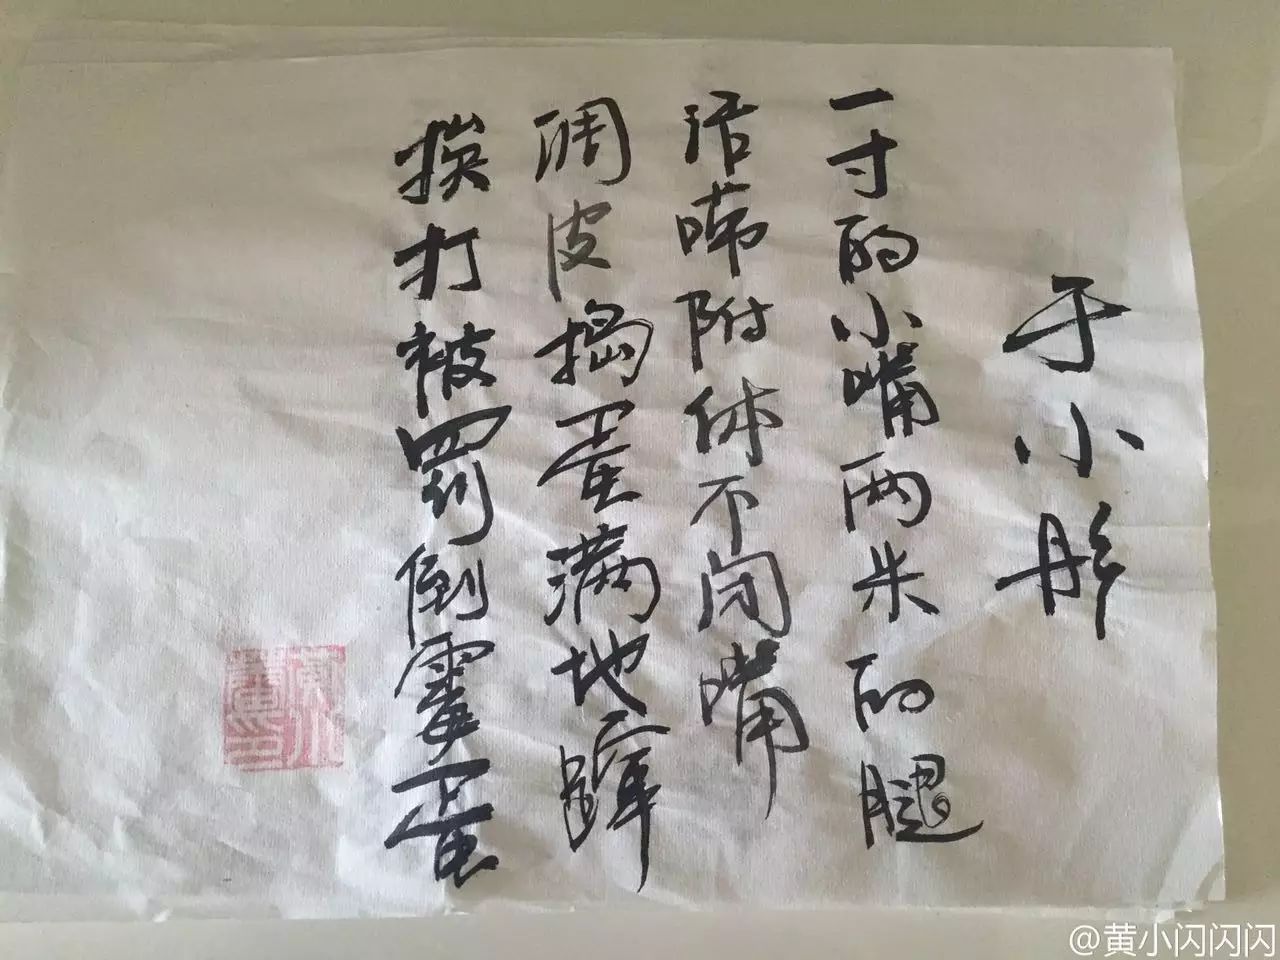 于小彤
一寸的小嘴两米的腿
话唠附体不闭嘴
调皮捣蛋满地蹿
挨打被罚倒霉蛋
@黄小闪闪闪